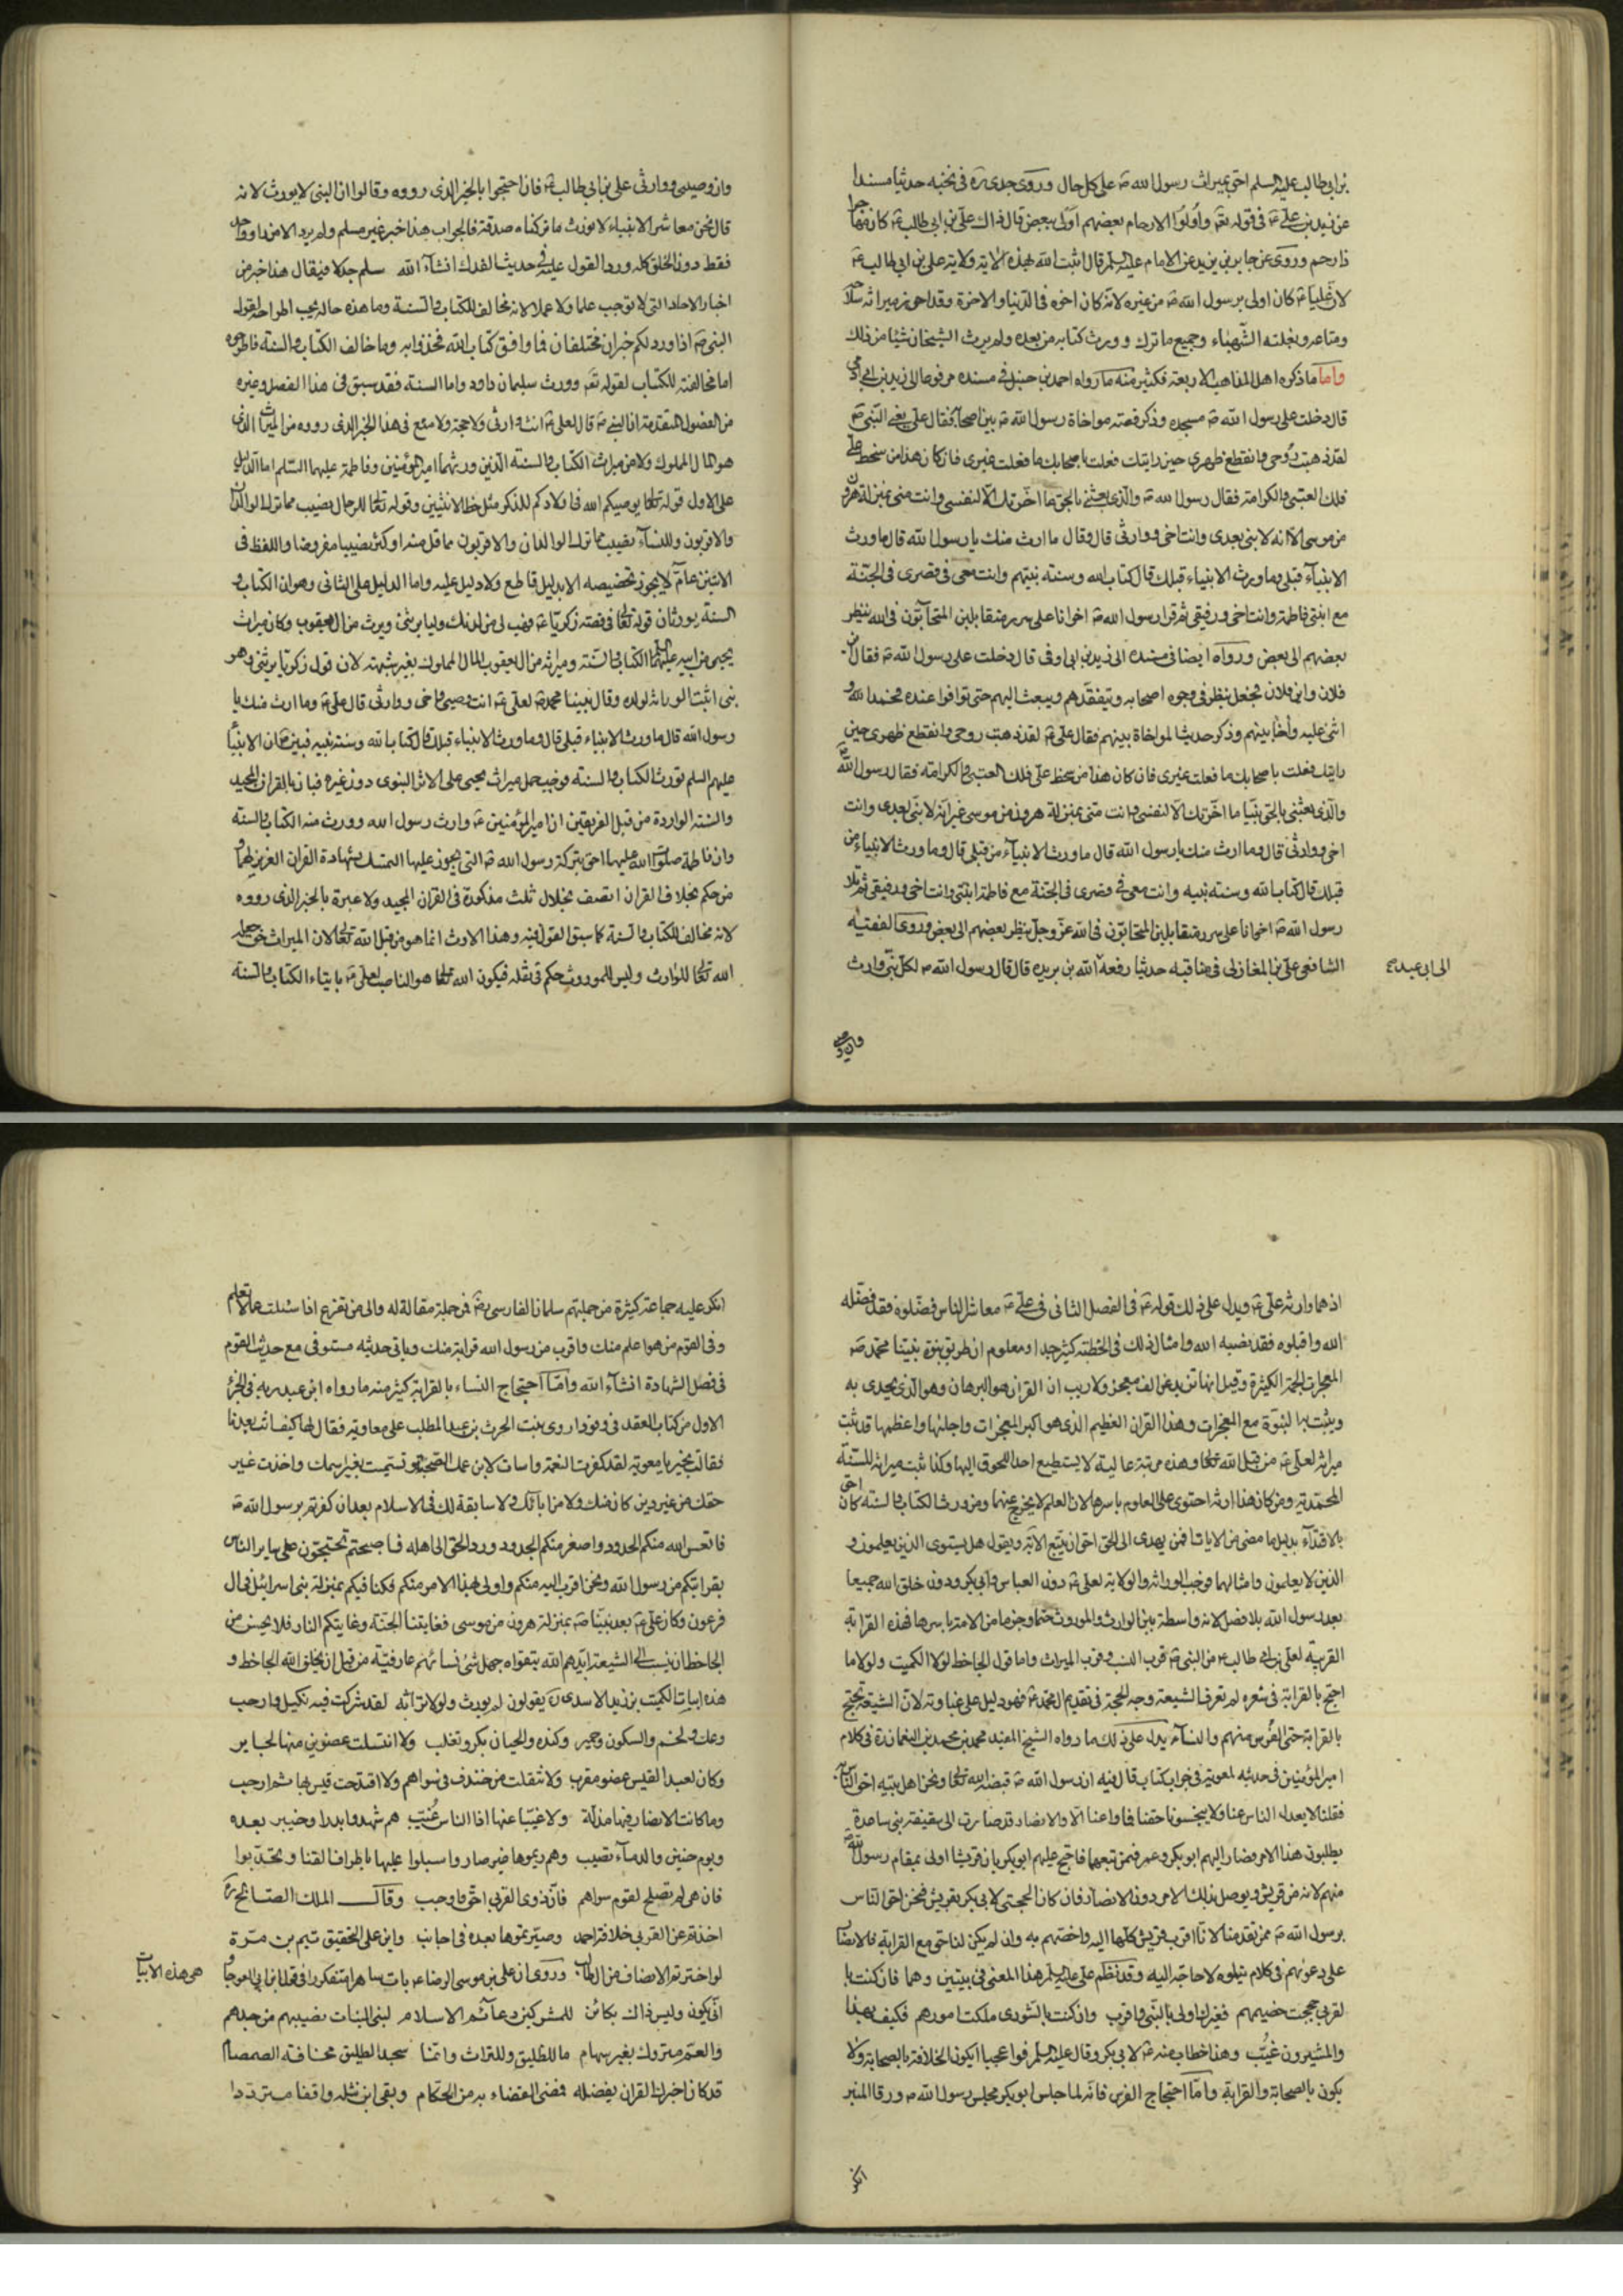 بن ابي طالب عليه السلم احق بميراث رسول الله ص على كل حال وروى جدى ره فى نخبه حديثا مسندا
عن زيد بن على ع فى قوله تع واولوا الارحام بعضهم اولى ببعض قال ذاك على بن ابي طالب ع كان مهاجرا
ذا رحم وروى عن جابر بن يزيد عن الامام عليه السلم قال اثبت الله بهذه الاية ولاية على بن ابي طالب ع
لان عليا ع كان اولى برسول الله ص من غيره لانه كان اخوه فى الدنيا والاخرة وقد احرز ميراثه سلاحه
ومتاعه وبغلته الشهباء وجميع ما ترك وورث كتابه من بعده ولم يرث الشيخان شيئا من ذلك
واما ما ذكره اهل المذاهب الاربعة فكثير منه ما رواه احمد بن حنبل فى مسنده مرفوعا الى زيد بن ابى اوفى
قال دخلت على رسول الله ص مسجده وذكر قصة مواخاة رسول الله ص بين اصحابه فقال على يعنى النبى ص
لقد ذهبت روحى وانقطع ظهرى حين رايتك فعلت باصحابك ما فعلت غيرى فان كان هذا من سخط على
فلك العتبى والكرامة فقال رسول الله ص والذى بعثنى بالحق ما اخرتك الا لنفسى وانت منى بمنزلة هرون
من موسى الا انه لا نبى بعدى وانت اخى ووارثى قال وقال ما ارث منك يا رسول الله قال ما ورث
الانبياء قبلى وما ورث الانبياء قبلك قال كتاب الله وسنة نبيهم وانت معى فى قصرى فى الجنة
مع ابنتى فاطمة وانت اخى ورفيقى ثم قرا رسول الله ص اخوانا على سرر متقابلين المتحابون فى الله ينظر
بعضهم الى بعض ورواه ايضا فى مسنده الى زيد بن ابى اوفى قال دخلت على رسول الله ص فقال اين
فلان واين فلان فجعل ينظر فى وجوه اصحابه ويتفقدهم ويبعث اليهم حتى توافوا عنده فحمد الله و
اثنى عليه واخا بينهم وذكر حديث المواخاة بينهم فقال على ع لقد ذهبت روحى وانقطع ظهرى حين
رايتك فعلت باصحابك ما فعلت غيرى فان كان هذا من سخط على فلك العتبى والكرامة فقال رسول الله ص
والذى بعثنى بالحق نبيا ما اخرتك الا لنفسى وانت منى بمنزلة هرون من موسى غير انه لا نبى بعدى وانت
اخى ووارثى قال وما ارث منك يا رسول الله قال ما ورث الانبياء من قبلى قال وما ورث الانبياء من
قبلك قال كتاب الله وسنة نبيه وانت معى فى قصرى فى الجنة مع فاطمة ابنتى وانت اخى ورفيقى ثم تلا
رسول الله ص اخوانا على سرر متقابلين المتحابون فى الله عز وجل ينظر بعضهم الى بعض وروى الفقيه
الشافعى على بن المغازلى فى مناقبه حديثا رفعه الله بن بريده قال قال رسول الله ص لكل نبى وارث
الى ابى عبد
وان وصيى
وان وصيى ووارثى على بن ابي طالب ع فان احتجوا بالخبر الذى رووه وقالوا ان النبى لا يورث لانه
قال نحن معاشر الانبياء لا نورث ما تركناه صدقة فالجواب هذا خبر غير مسلم ولم يرد الا من راو واحد
فقط دون الخلق كله ورد القول عليه فى حديث الفدك انشاء الله سلم جدلا فيقال هذا خبر من
اخبار الاحاد التى لا توجب علما ولا عملا لانه مخالف للكتاب والسنة وما هذه حاله يجب اطراحه لقول
النبى ص اذا ورد لكم خبران مختلفان فما وافق كتاب الله فخذوا به وما خالف الكتاب والسنة فاطرحوه
اما مخالفته للكتاب لقوله تع وورث سليمان داود واما السنة فقد سبق فى هذا الفصل وغيره
من الفصول المتقدمة ان النبى ص قال لعلى ع انت وارثى ولا حجة ولا منع فى هذا الخبر الذى رووه من الميراث الذى
هو المال المملوك ولا من ميراث الكتاب والسنة الذين ورثهما امير المؤمنين وفاطمة عليهما السلم اما الدليل
على الاول قوله تعالى يوصيكم الله فى اولادكم للذكر مثل حظ الانثيين وقوله تعالى للرجال نصيب مما ترك الوالدان
والاقربون وللنساء نصيب مما ترك الوالدان والاقربون مما قل منه او كثر نصيبا مفروضا واللفظ فى
الاثنين عام لا يجوز تخصيصه الا بدليل قاطع ولا دليل عليه واما الدليل على الثانى وهو ان الكتاب و
السنة يورثان قوله تعالى فى قصة زكريا ع فهب لى من لدنك وليا يرثنى ويرث من ال يعقوب وكان ميراث
يحيى من ابيه عليهما السلم الكتاب والسنة وميراثه من ال يعقوب المال المملوك بغير شبهة لان قول زكريا يرثنى وهو
نبى اثبت الوراثة لولده وقال نبينا محمد ص لعلى ع انت وصيى واخى ووارثى قال على ع وما ارث منك يا
رسول الله قال ما ورث الانبياء قبلى قال وما ورث الانبياء قبلك قال كتاب الله وسنة نبيه فبين ع ان الانبياء
عليهم السلم تورث الكتاب والسنة فوجب حمل ميراث يحيى على الارث النبوى دون غيره فبان بالقران المجيد
والسنة الواردة من قبل الفريقين ان امير المؤمنين ع وارث رسول الله وورث منه الكتاب والسنة
وان فاطمة صلوات الله عليها احق بتركة رسول الله ص التى يجوز عليها التمسك بشهادة القران العزيز لهما
من حكم بخلاف القران اتصف بخلال ثلث مذكورة فى القران المجيد ولا عبرة بالخبر الذى رووه
لانه مخالف للكتاب والسنة كما سبق القول فيه وهذا الارث انما هو من قبل الله تعالى لان الميراث حق جعله
الله تعالى للوارث وليس للموروث حكم فى نقله فيكون الله تعالى هو الناصب لعلى ع بايتاء الكتاب والسنة
اذ هما وارثه على ع ويدل على ذلك قوله ع فى الفصل الثانى فى على ع معاشر الناس فضلوه فقد فضله
الله واقبلوه فقد نصبه الله وامثال ذلك فى الخطبة كثير جدا ومعلوم ان طريق نبوة نبينا محمد ص
المعجزات الجمة الكثيرة وقيل انها تزيد عن الف معجز ولا ريب ان القران هو البرهان وهو الذى يحدى به
ويثبت بها النبوة مع المعجزات وهذا القران العظيم الذى هو اكبر المعجزات واجلها واعظمها قد ثبت
ميراثه لعلى ع من قبل الله تعالى وهذه مرتبة عالية لا يستطيع احد اللحوق اليها وكذا ثبت ميراثه للسنة
المحمدية ومن كان هذا ارثه احتوى على العلوم باسرها لان العلم لا يخرج عنهما ومن ورث الكتاب والسنة كان احق
بالاقتداء بدليل ما مضى من الايات افمن يهدى الى الحق احق ان يتبع الاية وبقول هل يستوى الذين يعلمون و
الذين لا يعلمون وامثالهما فوجب الوراثة والولاية لعلى ع دون العباس وابى بكر ودون خلق الله جميعا
بعد رسول الله بلا فصل لانه واسطة بين الوارث والموروث حتما وجزما من الامة باسرها فهذه القرابة
القريبة لعلى بن ابى طالب ع من النبى ص قرب النسب وقرب الميراث واما قول الجاحظ لولا الكميت ولولا ما
احتج بالقرابة فى شعره لم تعرف الشيعة وجه الحجة فى تقديم ال محمد ع فهو دليل على غباوته لان الشيعة تحتج
بالقرابة حتى الفرس منهم والنساء يدل على ذلك ما رواه الشيخ المفيد محمد بن محمد بن النعمان ره فى كلام
امير المؤمنين فى حديثه لمعوية فى جواب كتاب قال فيه ان رسول الله ص قبضه الله تعالى ونحن اهل بيته احق الناس به
فقلنا لا يعدل الناس عنا ولا يبخسونا حقنا فما راعنا الا والانصار قد صارت الى سقيفة بنى ساعدة
يطلبون هذا الامر فصار اليهم ابو بكر وعمر فيمن تبعهما فاحتج عليهم ابو بكر بان قريشا اولى بمقام رسول الله ص
منهم لانه من قريش وتوصل بذلك الامر دون الانصار فان كان الحجة لابى بكر بقريش فنحن احق الناس
برسول الله ص ممن تقدمنا لانا اقرب قريش كلها اليه واخصهم به وان لم يكن لنا حق مع القرابة فالانصار
على دعوتهم فى كلام يتلوه لا حاجة اليه وقد نظم على عليه السلم هذا المعنى فى بيتين وهما فان كنت با
لقربى حججت خصيمهم فغيرك اولى بالنبى واقرب وان كنت بالشورى ملكت امورهم فكيف بهذا
والمشيرون غيب وهذا خطاب منه ع لابى بكر وقال عليه السلم فوا عجبا ايكون الخلافة بالصحابة ولا
يكون بالصحابة والقرابة واما احتجاج الفرس فانه لما جلس ابو بكر مجلس رسول الله ص ورقا المنبر
انكر
انكر عليه جماعة كثيرة من جملتهم سلمان الفارسى رض فمن جملة مقالة له والى من تفزع اذا سئلت عما لا تعلم
وفى القوم من هو اعلم منك واقرب من رسول الله قرابة منك وياتى حديثه مستوفى مع حديث القوم
فى فصل الشهادة انشاء الله واما احتجاج النساء بالقرابة كثير منه ما رواه ابن عبد ربه فى الجزء
الاول من كتاب العقد فى وفود اروى بنت الحرث بن عبد المطلب على معاوية فقال لها كيف انت بعدنا
فقالت بخير يا معوية لقد كفرت النعمة واسات لابن عمك الصحبة وتسميت بغير اسمك واخذت غير
حقك من غير دين كان منك ولا من ابائك ولا سابقة لك فى الاسلام بعد ان كفرتم برسول الله ص
فاتعس الله منكم الجدود واصغر منكم الخدود ورد الحق الى اهله فاصبحتم تحتجون على ساير الناس
بقرابتكم من رسول الله ونحن اقرب اليه منكم واولى بهذا الامر منكم فكنا فيكم بمنزلة بنى اسرائيل فى ال
فرعون وكان على ع بعد نبينا ص بمنزلة هرون من موسى فغايتنا الجنة وغايتكم النار فلا يحسن من
الجاحظ ان ينسب الى الشيعة ايدهم الله بتقواه جهل شئ نساؤهم عارفة من قبل ان يخلق الله الجاحظ و
هذه ابيات الكميت بن زيد الاسدى ره يقولون لم يورث ولولا تراثه لقد شركت فيه بكيل وارحب
وعك ولخم والسكون وحمير وكنده والحيان بكر وتغلب ولا انتشلت عضوين منها يحابر
وكان لعبد القيس عضو مؤرب ولا انتقلت من خندف فى سواهم ولا اقتدحت قيس بها ثم ارحب
وما كانت الانصار فيها مذلة ولا غيبا عنها اذا الناس غيب هم شهدوا بدرا وخيبر بعده
ويوم حنين والدماء تصبب وهم ريموها غير صار واسبلوا عليها باطراف القنا وتحدبوا
فان هى لم تصلح لقوم سواهم فان ذوى القربى احق واوجب وقال الملك الصالح ره
اخذتم عن القربى خلافة احمد وصيرتموها بعده فى اجانب واين على التحقيق تيم بن مرة
لو اخترتم الانصاف من ال طالب وروى ان على بن موسى الرضا ع بات ساهرا متفكرا فى قول ابن ابى العوجا
هى هذه الابيات
انى يكون وليس ذاك بكائن للمشركين دعائم الاسلام لبنى البنات نصيبهم من جدهم
والعم متروك بغير سهام ما للطليق وللتراث وانما سجد الطليق مخافة الصمصام
قد كان اخبرك القران بفضله فمضى القضاء به من الحكام وبقى ابن نثله واقفا مترددا